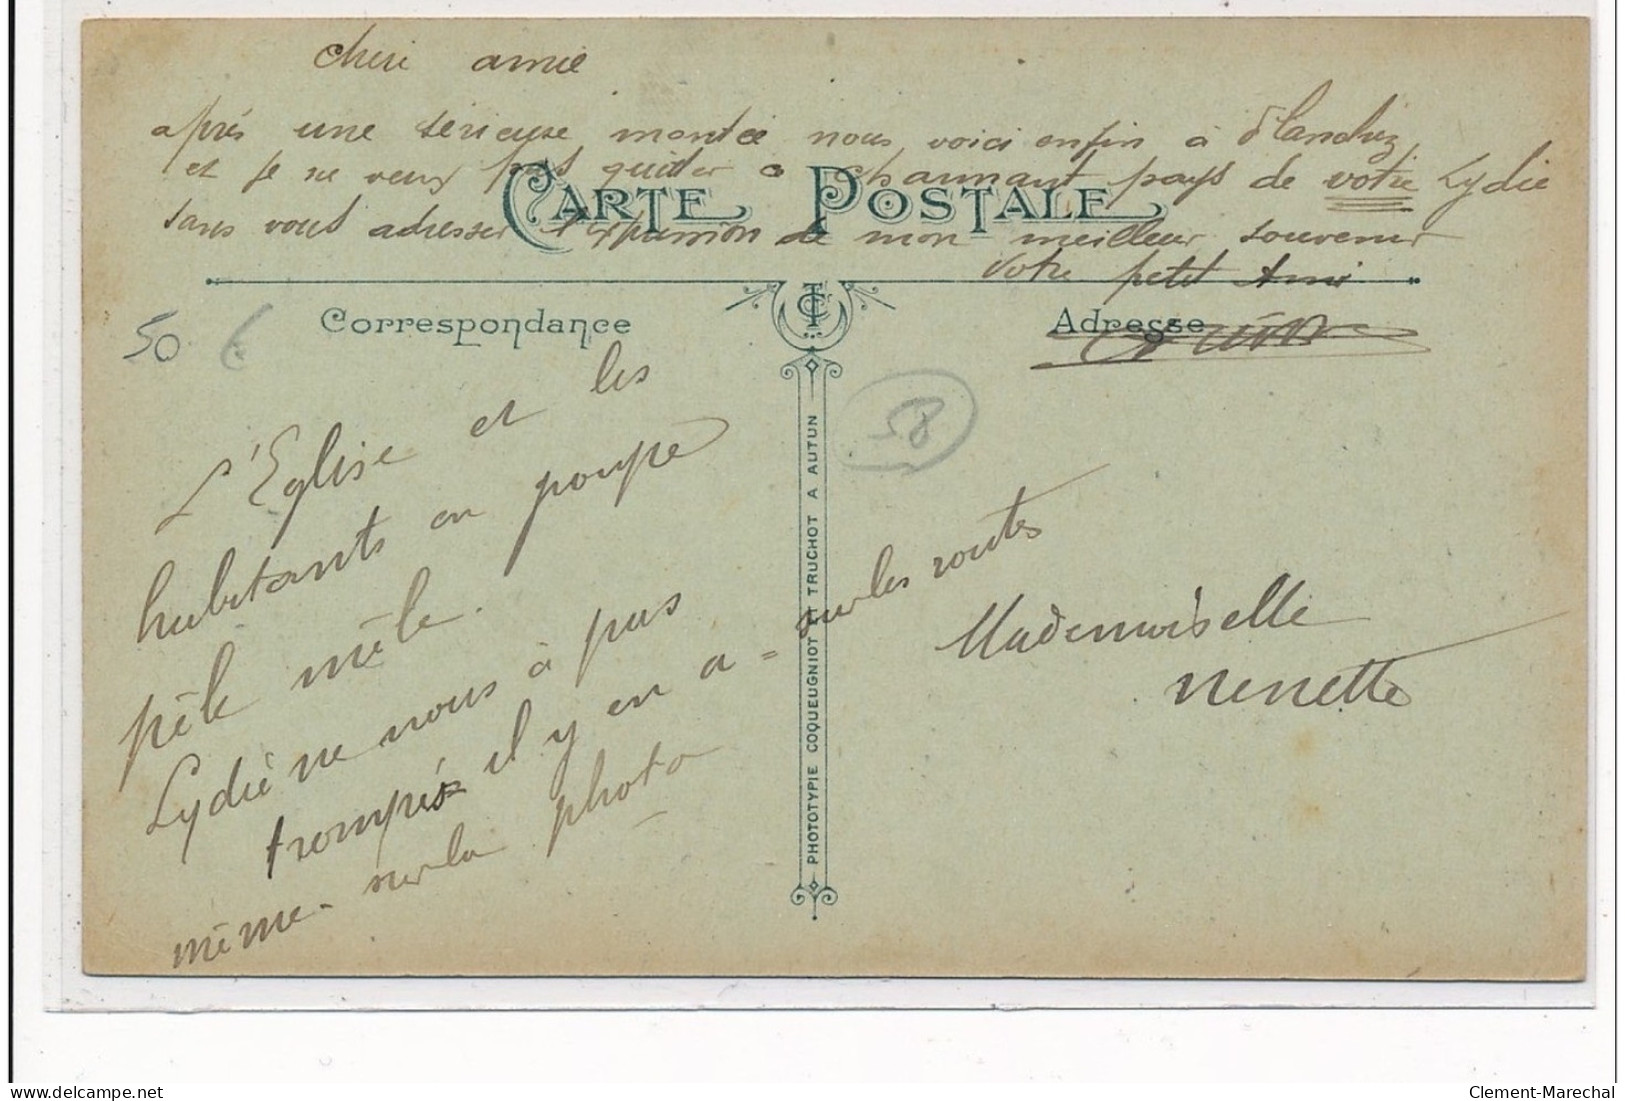 cheri amie
après une sérieuse montée nous voici enfin à Planchez
et je ne veux pas quitter c charmant pays de votre Lydie
sans vous adresser l'expression de mon meilleur souvenir
votre petit Ami
CARTE POSTALE
Correspondance
Adresse
50 €
58
L'Eglise et les
habitants en poupé
pêle mêle.
Lydie ne nous à pas
trompés il y en a = sur les routes
même - sur la photo
Mademoiselle
Nenette
PHOTOTYPIE COQUEUGNIOT ET TRUCHOT A AUTUN
Clement-Marechal